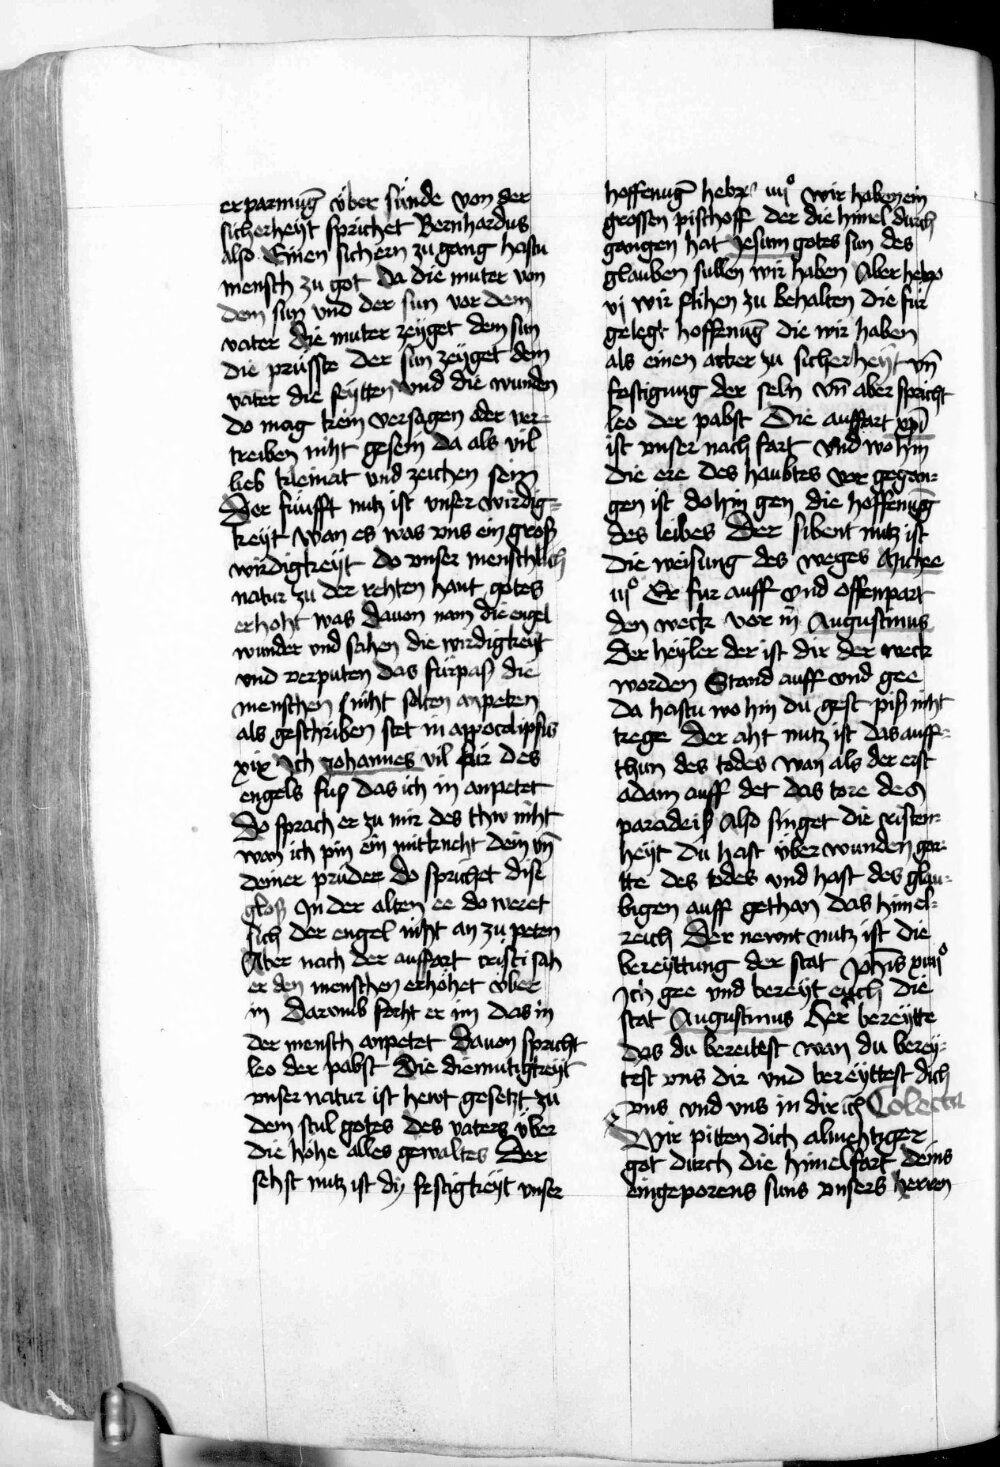 erparmug̅ über sünde von der
sicherheyt sprichet Bernhardus
also Einen sichern zu gang hastu
mensch zu got Da die muter von
dem sun vnd der sun vor dem
vater die muter zeyget dem sun
die prüsste Der sun zeyget dem
vater die seytten vnd die wunden
do mag kein versagen oder ver-
treiben niht gesein da als vil
lieb kleinat vnd zeichen sein
Der fünfft nutz ist vnser wirdig-
keyt wan es was vns ein groß
wirdigkeyt do vnser menschlich
natur zu der rehten hant gotes
erhoht was Dauon nam die engel
wunder vnd sahen die wirdigkeyt
vnd verputen das fürpaß die
menschen niht solten anpeten
als geschriben stet in appocolipsus
xix Ich Johannes vil für des
engels fuß das ich in anpetet
Do sprach er zu mir des thw niht
wan ich pin ein mitkneht dein vn̅
deiner prüder do sprichet dise
gloß In der alten ee do weret
sich der engel niht an zu peten
Aber nach der auffart cristi sah
er den menschen erhöhet über
in Darumb forht er im das in
der mensch anpetet Dauon spricht
leo der pabst Die diemutigkeyt
vnser natur ist hewt gesetzt zu
dem stul gotes des vaters über
die höhe alles gewaltes Der
sehst nutz ist dy festigkeyt vnser
hoffenug̅ hebre iiij° wir haben ein
grossen pischoff der die himel durch
gangen hat Jesum gotes sun des
glauben sullen wir haben Aber hebre
vj wir flihen zu behalten die für
gelegt hoffenug̅ die wir haben
als einen acker zu sicherheyt vn̅
festigung der seln vn̅ aber spricht
leo der pabst Die auffart xp̅i
ist vnser nach fart vnd wo hin
die ere des haubtes vor gegan-
gen ist do hin gen die hoffenug̅
des leibes Der sibent nutz ist
die weisung des weges Michee
iij° Er fur auff vnd offenpart
den weck vor in Augustinus
Der heyler der ist dir der weck
worden Stand auff vnd gee
Da hastu wo hin du gest piß niht
trege Der aht nutz ist das auff-
thun des todes wan als der erst
adam auff det das tore des
paradeiß Also singet die cristen-
heyt Du hast über wunden gar-
tte des todes vnd hast des glau-
bigen auff gethan das himel-
reich Der newnt nutz ist die
bereyttung der stat Joh̅is xiiij°
Ich gee vnd bereyt euch die
stat Augustinus Her bereytte
das du bereitest wan du berey-
test vns dir vnd bereyttest dich
vns vnd vns in dir ich Colecta
Wir pitten dich almehtiger
got durch die himelfart deins
eingeporens suns vnsers herren